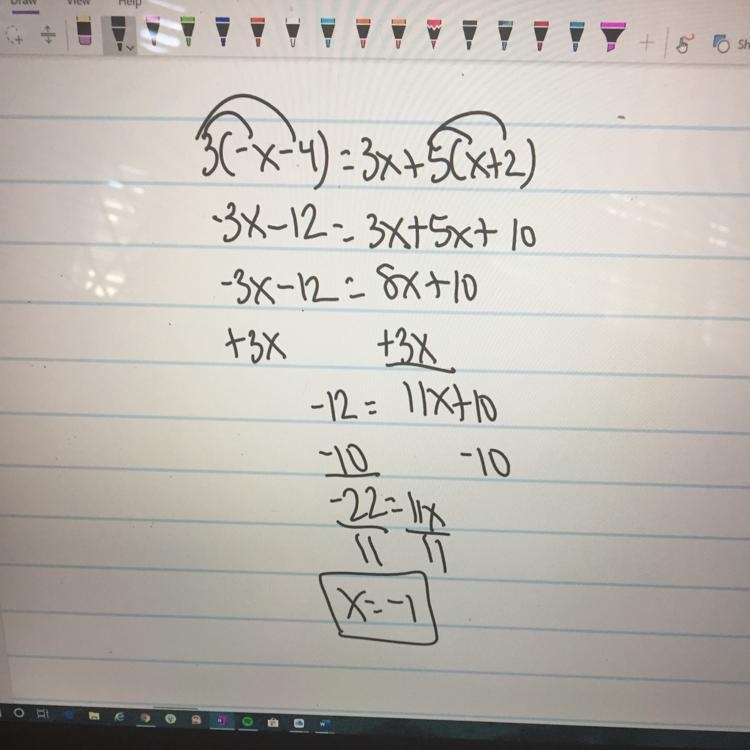 Draw View Help
Sh
3(-x-4)=3x+5(x+2)
-3x-12=3x+5x+10
-3x-12=8x+10
+3x +3x
-12=11x+10
-10 -10
-22=11x
11 11
x=-1